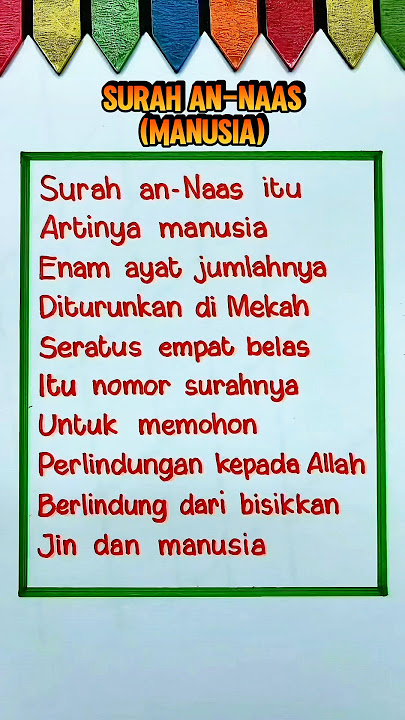 SURAH AN-NAAS
(MANUSIA)
Surah an-Naas itu
Artinya manusia
Enam ayat jumlahnya
Diturunkan di Mekah
Seratus empat belas
Itu nomor surahnya
Untuk memohon
Perlindungan kepada Allah
Berlindung dari bisikkan
Jin dan manusia